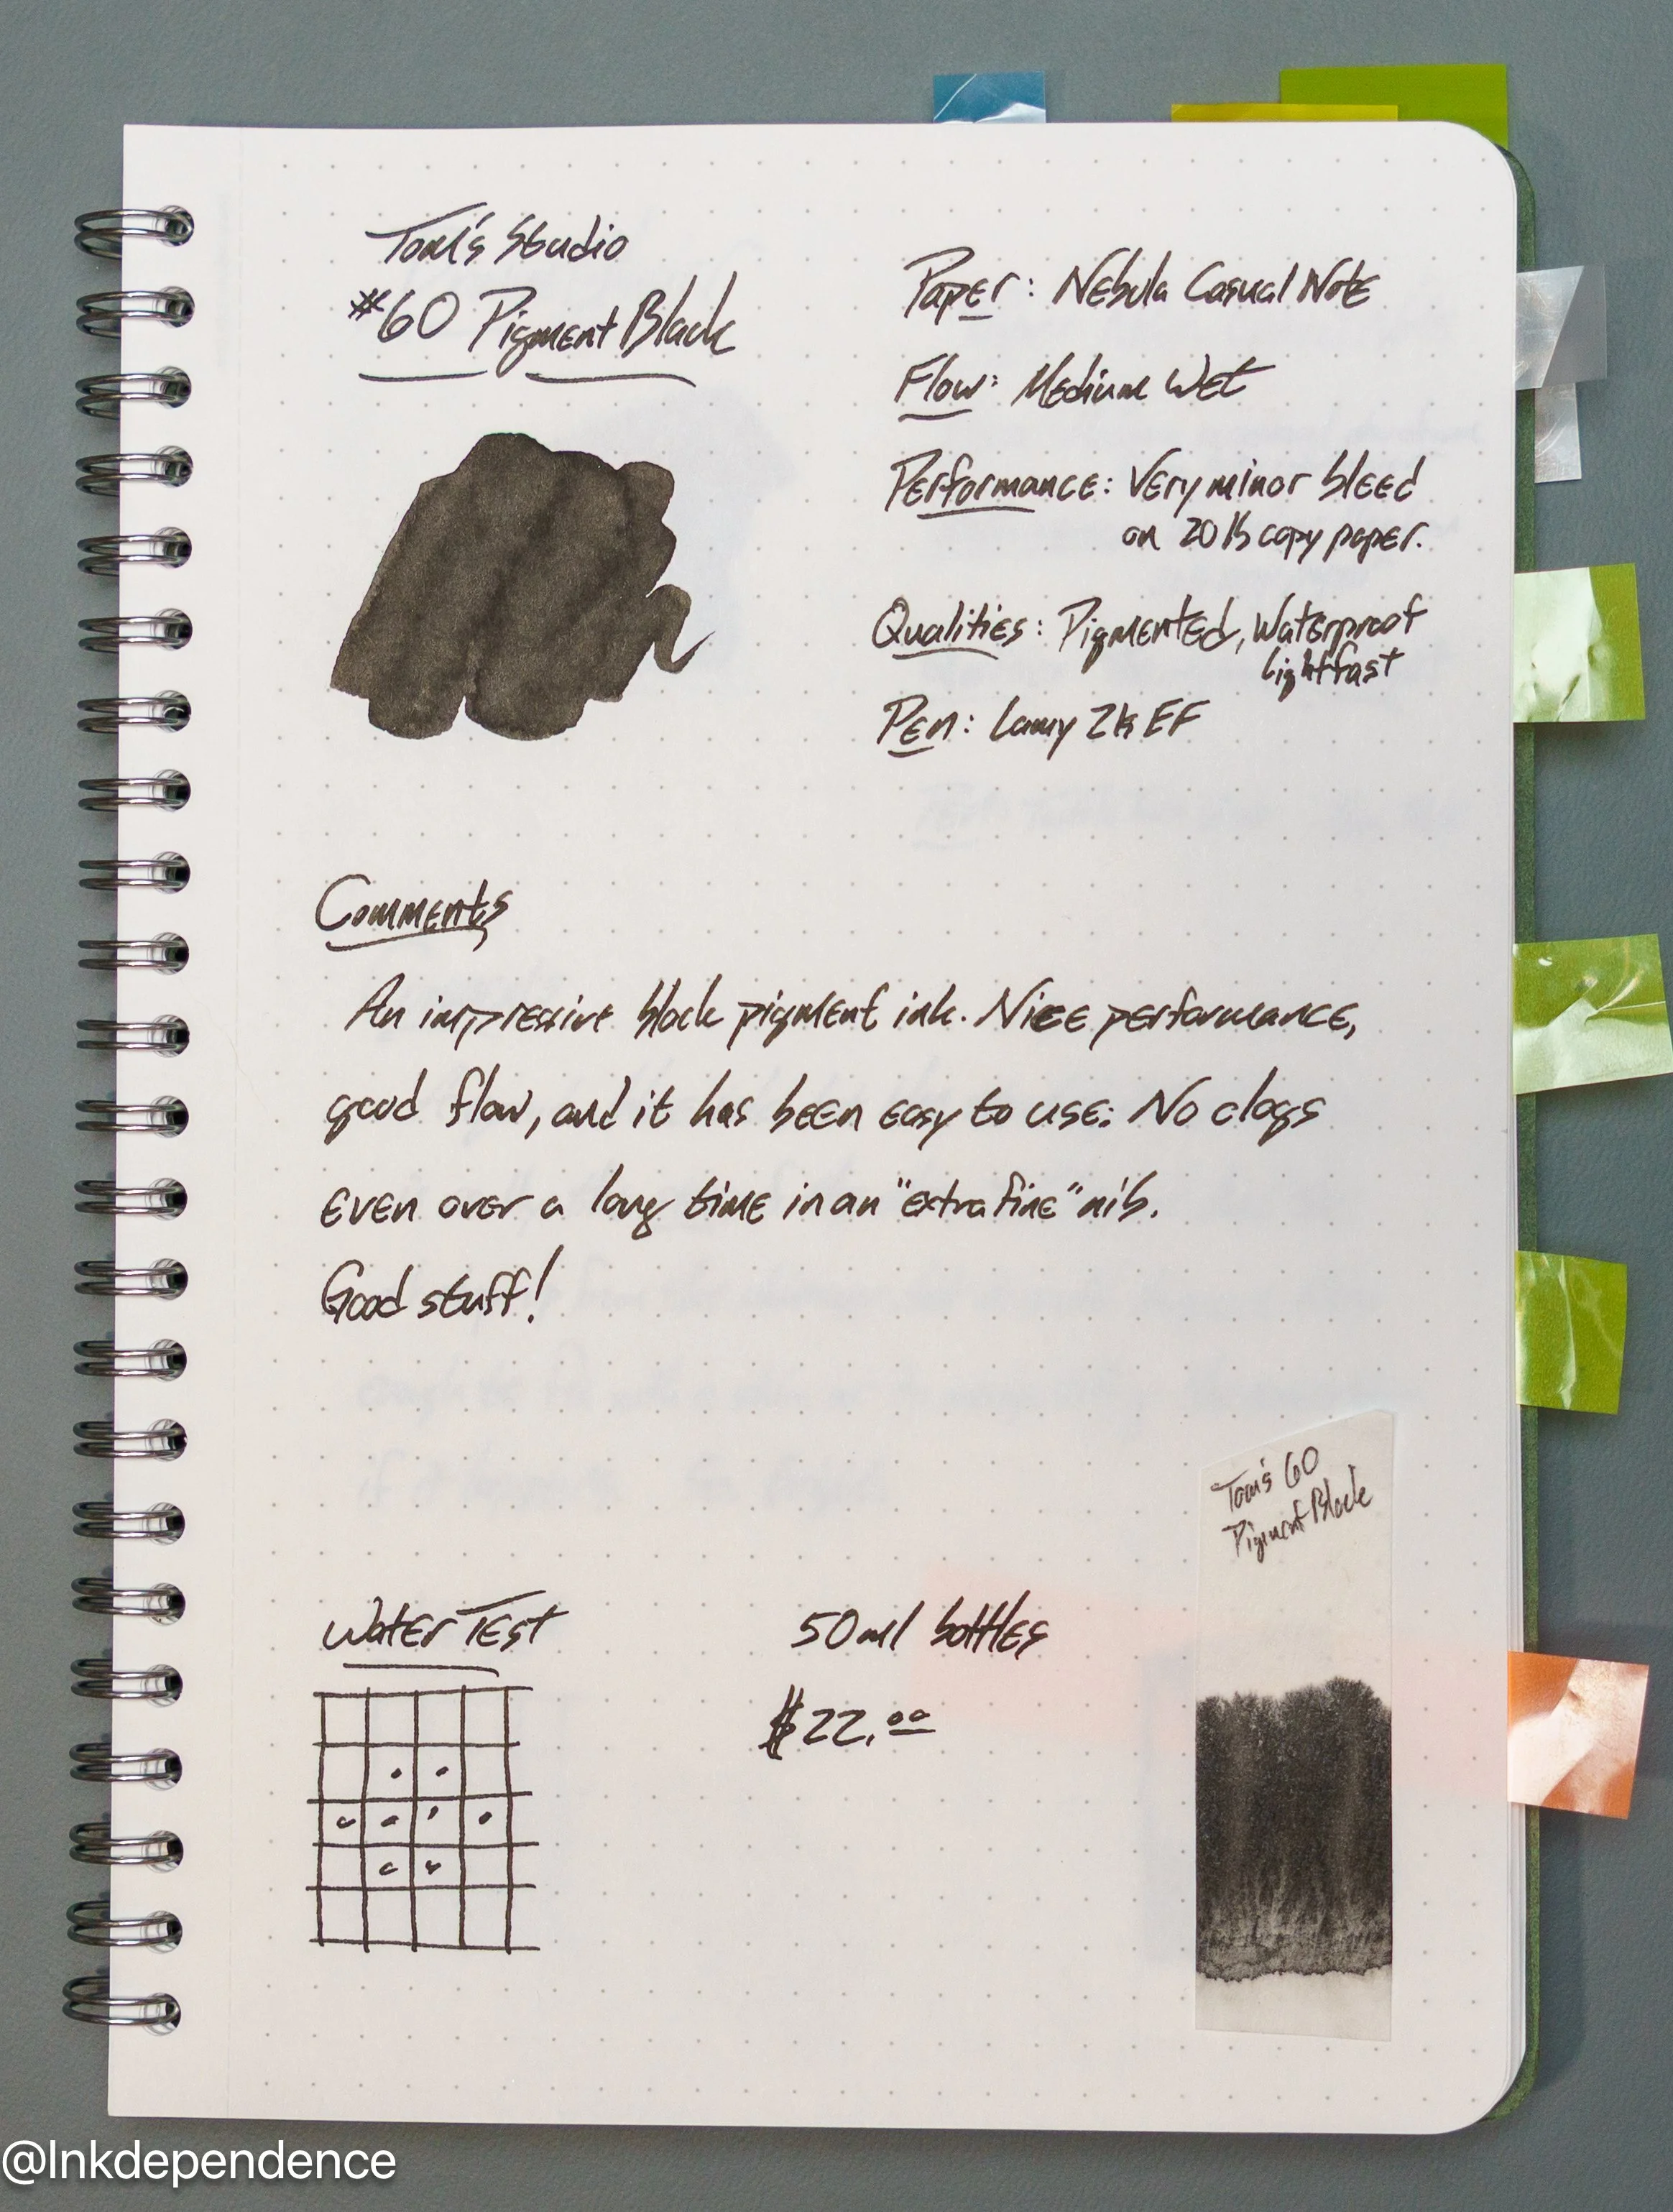 Tom's Studio
#60 Pigment Black
Paper: Nebula Casual Note
Flow: Medium Wet
Performance: Very minor bleed
on 20lb copy paper.
Qualities: Pigmented, Waterproof
Lightfast
Pen: Lamy 2k EF
Comments
An impressive black pigment ink. Nice performance,
good flow, and it has been easy to use: No clogs
even over a long time in an "extra fine" nib.
Good stuff!
Tom's 60
Pigment Black
Water Test
50ml bottles
$22.00
@Inkdependence